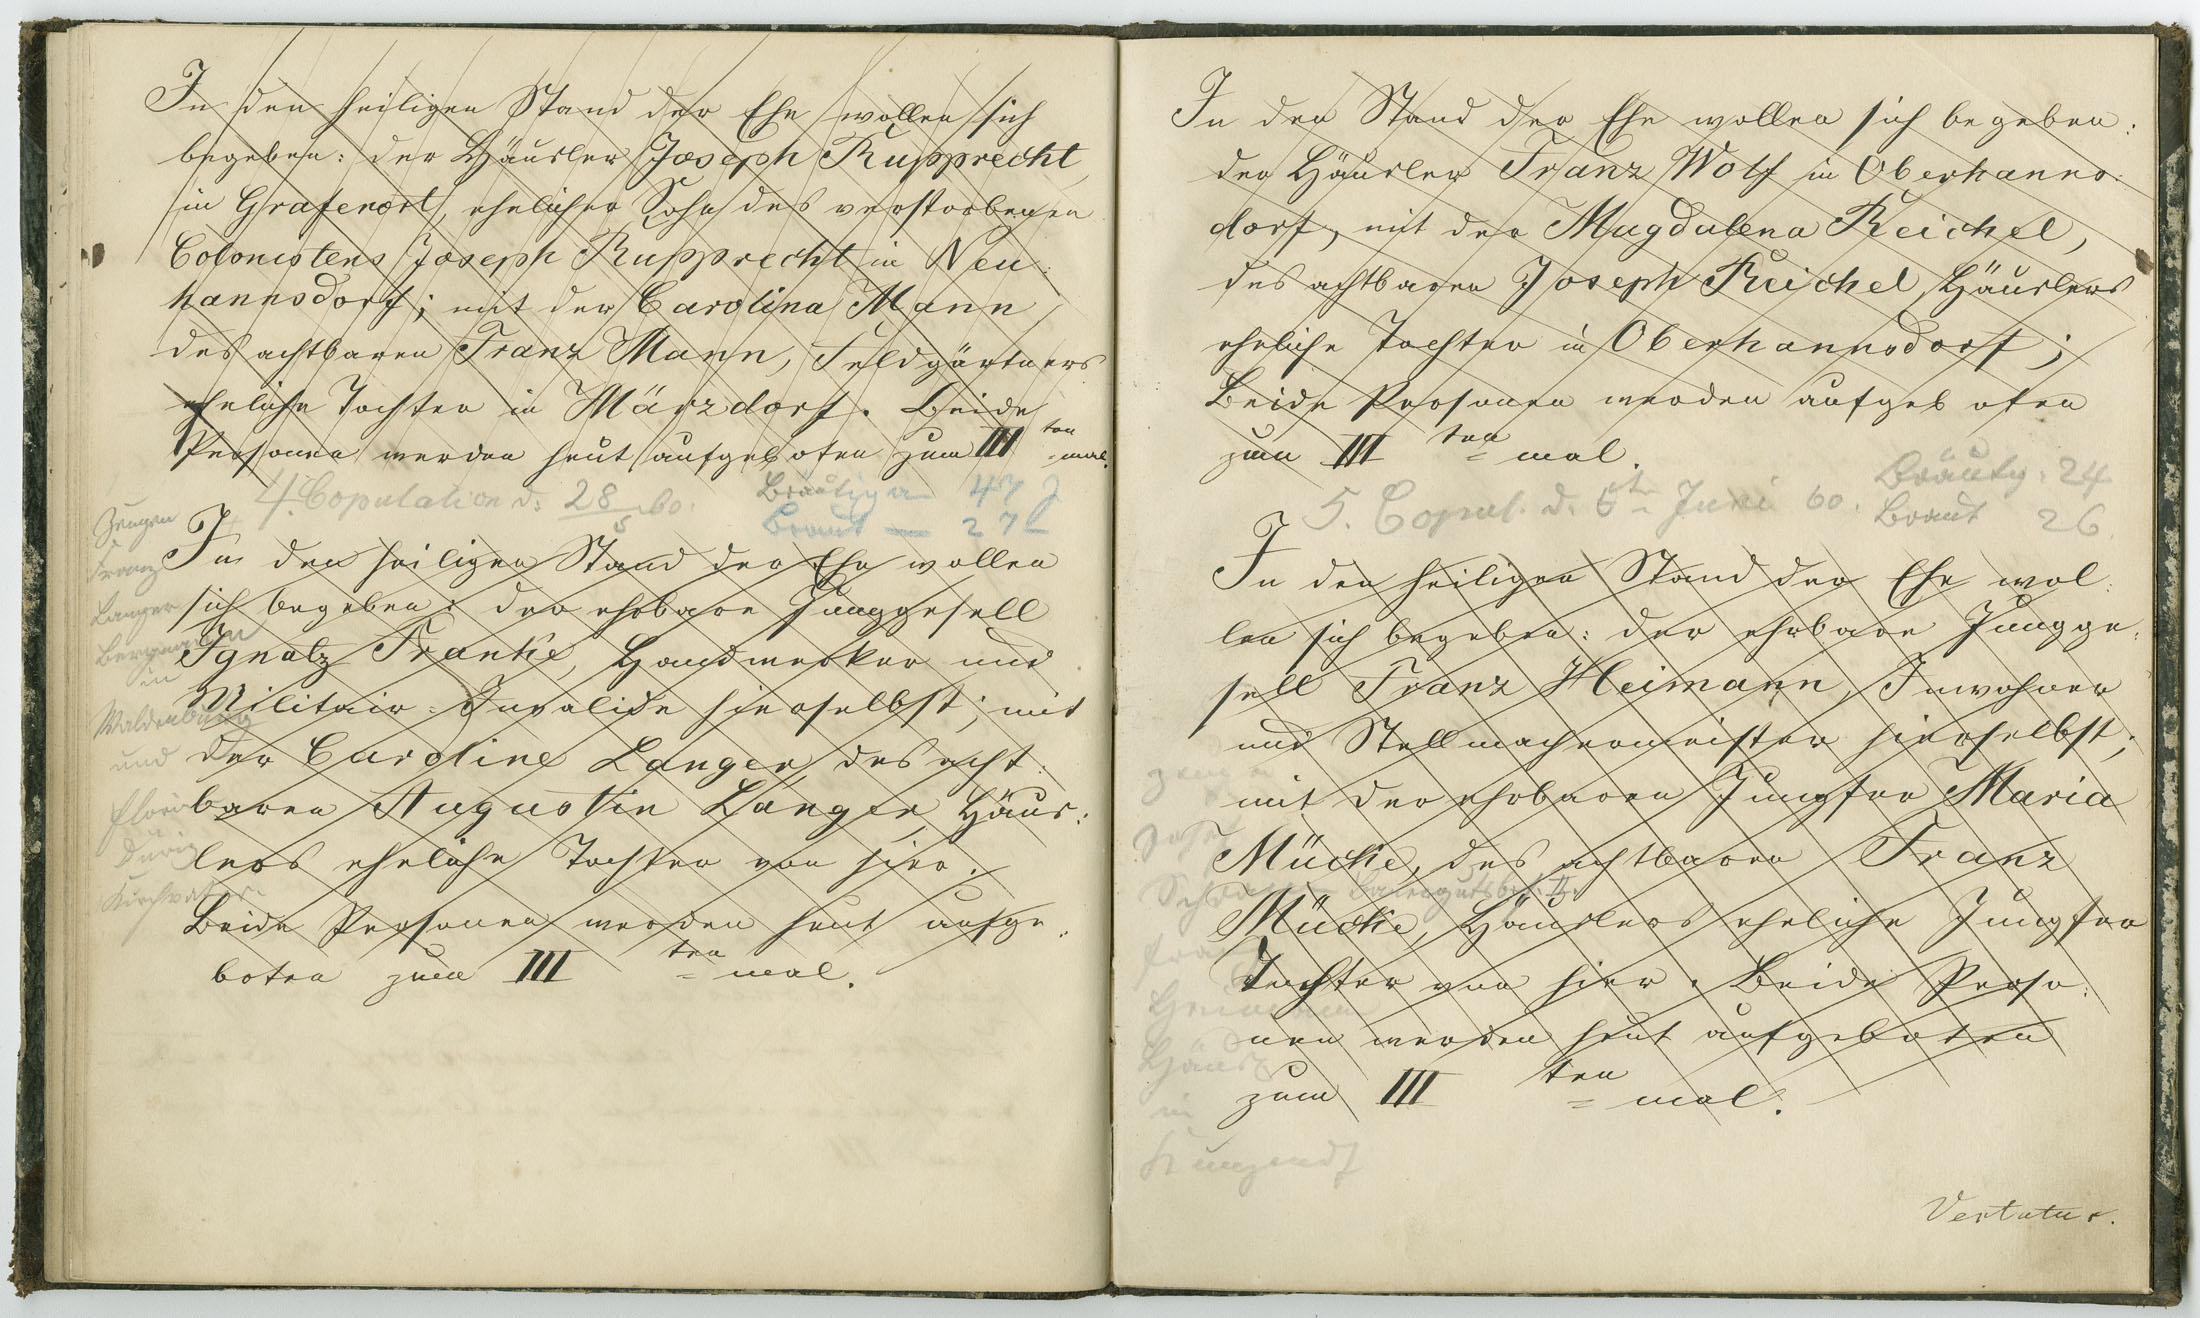 In den heiligen Stand der Ehe wollen sich
begeben: der Häusler Joseph Rupprecht
in Grafenort, ehelicher Sohn des verstorbenen
Colonistens Joseph Rupprecht in Neu:
hannsdorf; mit der Carolina Mann
des achtbaren Franz Mann, Feldgärtners
eheliche Tochter in Märzdorf. Beide
Personen werden heut aufgeboten zum III ten = mal.
4. Copulation d. 28/5 60. Bräutigam 47 J
Braut — 27
Zeugen
Franz
Langer
Bergmann
in
Waldenburg
und
Kirchvater
In den heiligen Stand der Ehe wollen
sich begeben: der ehrbare Junggesell
Ignatz Franke, Handwerker und
Militair-Invalide hierselbst; mit
der Caroline Langer, des acht:
baren Augustin Langer, Häus:
lers eheliche Tochter von hier.
Beide Personen werden heut aufge:
boten zum III ten = mal.
In den Stand der Ehe wollen sich begeben:
der Häusler Franz Wolf in Oberhanns:
dorf, mit der Magdalena Reichel,
des achtbaren Joseph Reichel, Häuslers
eheliche Tochter in Oberhannsdorf;
Beide Personen werden aufgeboten
zum III ten = mal.
5. Copul. d. 5t Juni 60. Bräutg: 24
Braut 26
In den heiligen Stand der Ehe wol:
len sich begeben: der ehrbare Jungge:
sell Franz Heimann, Inwohner
und Stellmachermeister hierselbst;
mit der ehrbaren Jungfer Maria
Mücke, des achtbaren Franz
Mücke, Häuslers eheliche Jungfer
Tochter von hier. Beide Perso:
nen werden heut aufgeboten
zum III ten = mal.
Heimann
Häusl
in
Kunzendf
Vertatur.